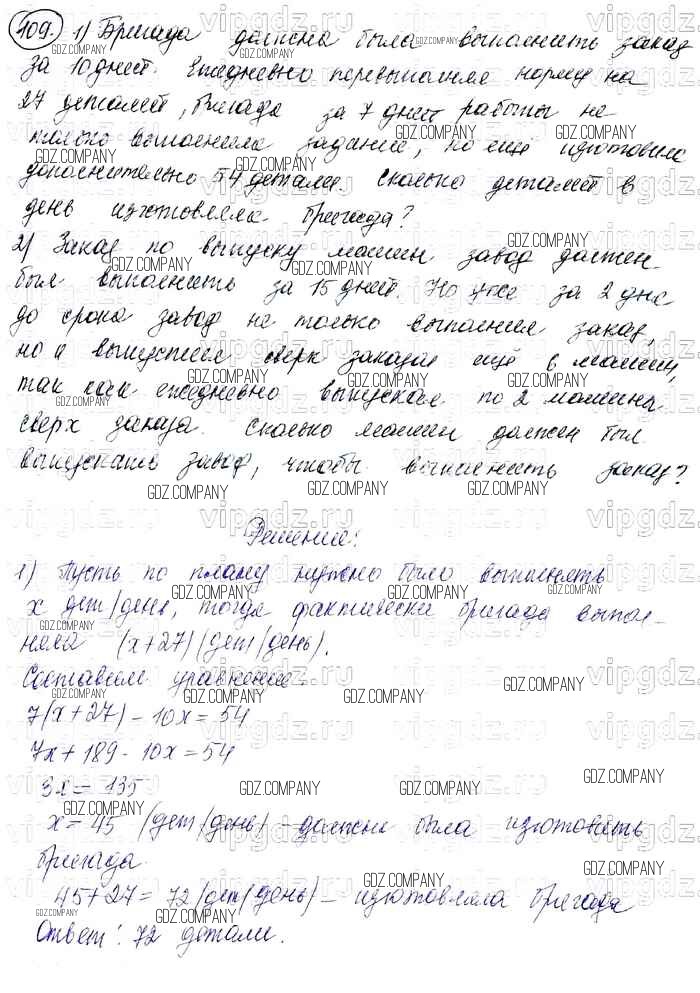 109. 1) Бригада должна была выполнить заказ
за 10 дней. Ежедневно перевыполняя норму на
27 деталей, бригада за 7 дней работы не
только выполнила задание, но ещё изготовила
дополнительно 54 детали. Сколько деталей в
день изготовляла бригада?
2) Заказ по выпуску машин завод должен
был выполнить за 15 дней. Но уже за 2 дня
до срока завод не только выполнил заказ,
но и выпустил сверх заказа ещё 6 машин,
так как ежедневно выпускал по 2 машины
сверх заказа. Сколько машин должен был
выпускать завод, чтобы выполнить заказ?
Решение:
1) Пусть по плану нужно было выполнять
x дет/день, тогда фактически бригада выпол-
няла (x+27) (дет/день).
Составим уравнение.
7(x+27) - 10x = 54
7x + 189 - 10x = 54
3x = 135
x = 45 (дет/день) - должна была изготовить
бригада.
45+27 = 72 (дет/день) - изготовляла бригада
Ответ: 72 детали.
vipgdz.ru
GDZ.COMPANY